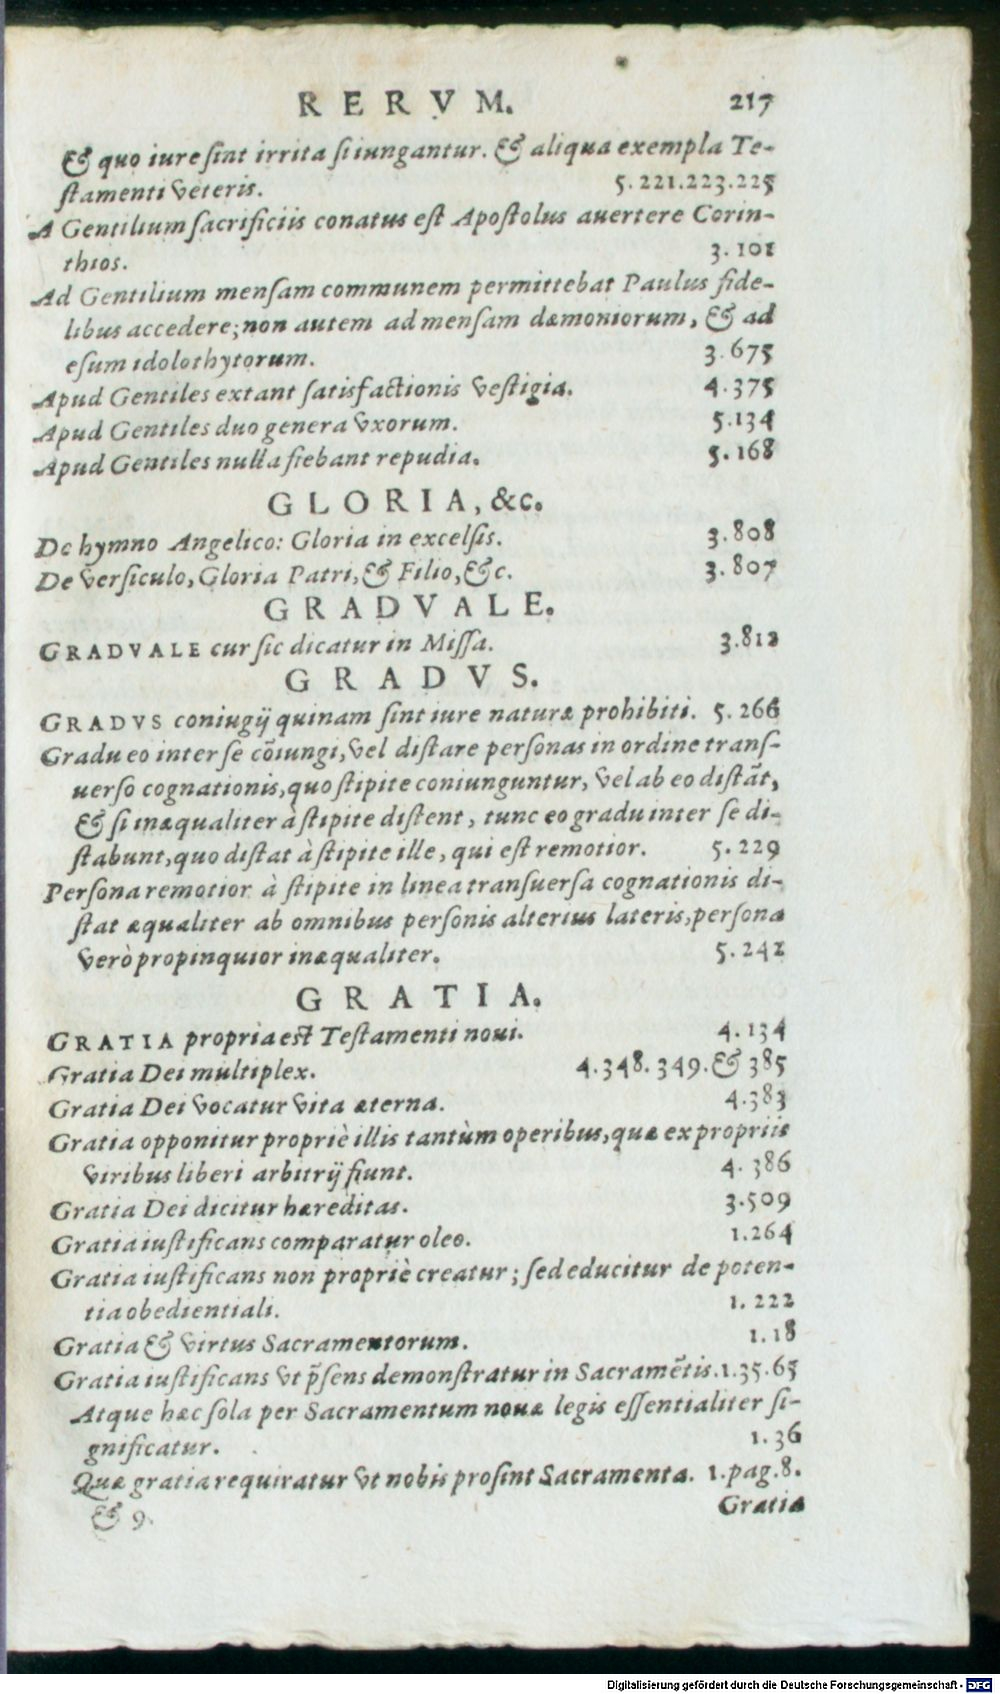 RERVM. 217
& quo iure ſint irrita ſi iungantur. & aliqua exempla Te-
ſtamenti veteris. 5. 221.223.225
A Gentilium ſacrificiis conatus eſt Apoſtolus auertere Corin-
thios. 3. 101
Ad Gentilium menſam communem permittebat Paulus fide-
libus accedere; non autem ad menſam dæmoniorum, & ad
eſum idolothytorum. 3. 675
Apud Gentiles extant ſatisfactionis veſtigia. 4. 375
Apud Gentiles duo genera vxorum. 5. 134
Apud Gentiles nulla fiebant repudia. 5. 168
GLORIA, &c.
De hymno Angelico: Gloria in excelſis. 3. 808
De verſiculo, Gloria Patri, & Filio, &c. 3. 807
GRADVALE.
GRADVALE cur ſic dicatur in Miſſa. 3. 812
GRADVS.
GRADVS coniugij quinam ſint iure naturæ prohibiti. 5. 266
Gradu eo inter ſe cõiungi, vel diſtare perſonas in ordine tranſ-
uerſo cognationis, quo ſtipite coniunguntur, vel ab eo diſtãt,
& ſi inæqualiter à ſtipite diſtent, tunc eo gradu inter ſe di-
ſtabunt, quo diſtat à ſtipite ille, qui eſt remotior. 5. 229
Perſona remotior à ſtipite in linea tranſuerſa cognationis di-
ſtat æqualiter ab omnibus perſonis alterius lateris, perſona
verò propinquior inæqualiter. 5. 242
GRATIA.
GRATIA propria est Teſtamenti noui. 4. 134
Gratia Dei multiplex. 4. 348. 349. & 385
Gratia Dei vocatur vita æterna. 4. 383
Gratia opponitur propriè illis tantùm operibus, quæ ex propriis
viribus liberi arbitrij fiunt. 4. 386
Gratia Dei dicitur hæreditas. 3. 509
Gratia iuſtificans comparatur oleo. 1. 264
Gratia iuſtificans non propriè creatur; ſed educitur de poten-
tia obedientiali. 1. 222
Gratia & virtus Sacramentorum. 1. 18
Gratia iuſtificans vt p̃ſens demonſtratur in Sacramẽtis. 1. 35. 65
Atque hæc ſola per Sacramentum nouæ legis eſſentialiter ſi-
gnificatur. 1. 36
Quæ gratia requiratur vt nobis proſint Sacramenta. 1. pag. 8.
& 9. Gratia
Digitalisierung gefördert durch die Deutsche Forschungsgemeinschaft - DFG